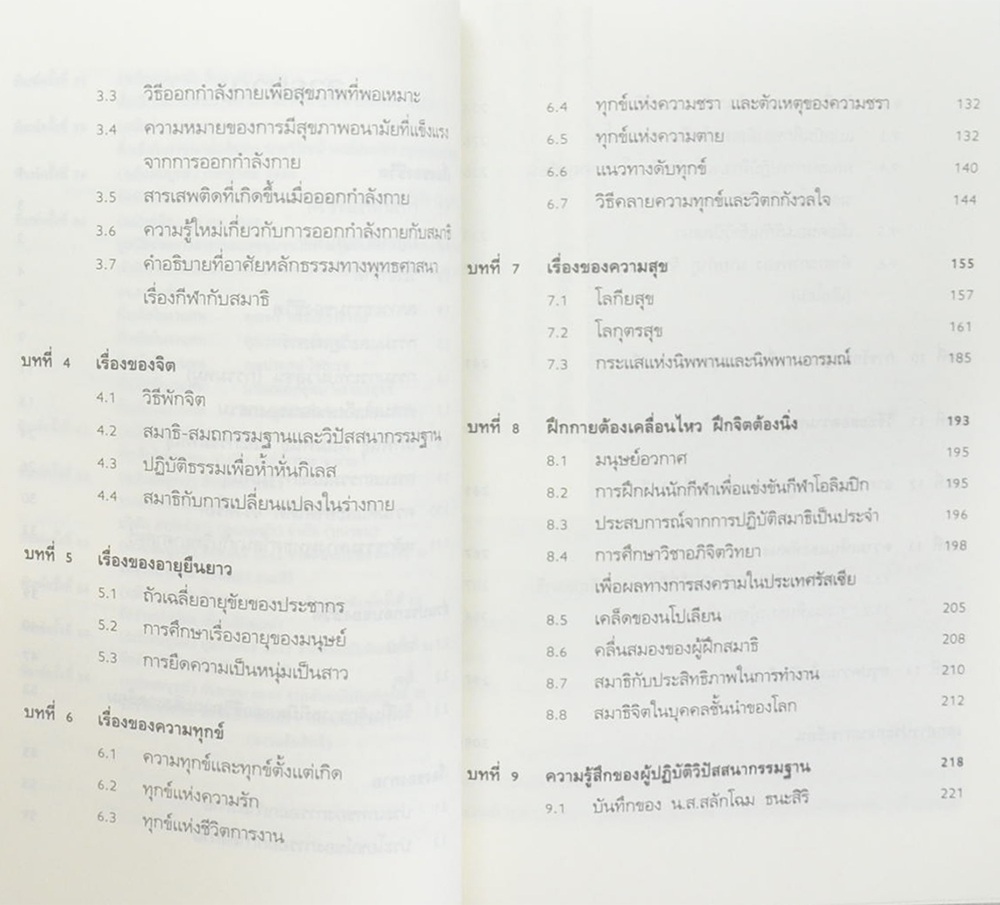 3.3 วิธีออกกำลังกายเพื่อสุขภาพที่พอเหมาะ
3.4 ความหมายของการมีสุขภาพอนามัยที่แข็งแรง
จากการออกกำลังกาย
3.5 สารเสพติดที่เกิดขึ้นเมื่อออกกำลังกาย
3.6 ความรู้ใหม่เกี่ยวกับการออกกำลังกายกับสมาธิ
3.7 คำอธิบายที่อาศัยหลักธรรมทางพุทธศาสนา
เรื่องกีฬากับสมาธิ
บทที่ 4 เรื่องของจิต
4.1 วิธีพักจิต
4.2 สมาธิ-สมถกรรมฐานและวิปัสสนากรรมฐาน
4.3 ปฏิบัติธรรมเพื่อห้ำหั่นกิเลส
4.4 สมาธิกับการเปลี่ยนแปลงในร่างกาย
บทที่ 5 เรื่องของอายุยืนยาว
5.1 ถัวเฉลี่ยอายุขัยของประชากร
5.2 การศึกษาเรื่องอายุของมนุษย์
5.3 การยืดความเป็นหนุ่มเป็นสาว
บทที่ 6 เรื่องของความทุกข์
6.1 ความทุกข์และทุกข์ตั้งแต่เกิด
6.2 ทุกข์แห่งความรัก
6.3 ทุกข์แห่งชีวิตการงาน
6.4 ทุกข์แห่งความชรา และตัวเหตุของความชรา 132
6.5 ทุกข์แห่งความตาย 132
6.6 แนวทางดับทุกข์ 140
6.7 วิธีคลายความทุกข์และวิตกกังวลใจ 144
บทที่ 7 เรื่องของความสุข 155
7.1 โลกียสุข 157
7.2 โลกุตรสุข 161
7.3 กระแสแห่งนิพพานและนิพพานอารมณ์ 185
บทที่ 8 ฝึกกายต้องเคลื่อนไหว ฝึกจิตต้องนิ่ง 193
8.1 มนุษย์อวกาศ 195
8.2 การฝึกฝนนักกีฬาเพื่อแข่งขันกีฬาโอลิมปิก 195
8.3 ประสบการณ์จากการปฏิบัติสมาธิเป็นประจำ 196
8.4 การศึกษาวิชาอภิจิตวิทยา 198
เพื่อผลทางการสงครามในประเทศรัสเซีย
8.5 เคล็ดของนโปเลียน 205
8.6 คลื่นสมองของผู้ฝึกสมาธิ 208
8.7 สมาธิกับประสิทธิภาพในการทำงาน 210
8.8 สมาธิจิตในบุคคลชั้นนำของโลก 212
บทที่ 9 ความรู้สึกของผู้ปฏิบัติวิปัสสนากรรมฐาน 218
9.1 บันทึกของ น.ส.สลักโฉม ธนะสิริ 221